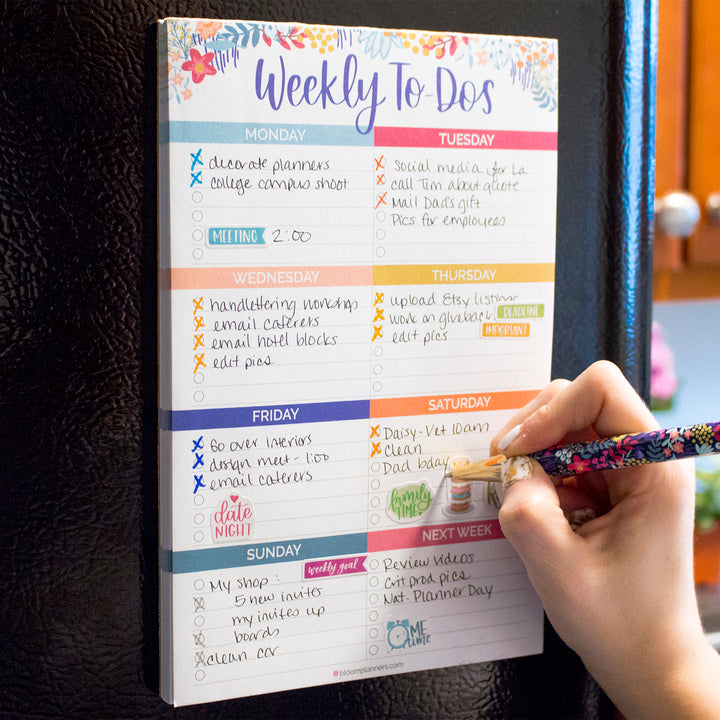 Weekly To-Dos
MONDAY
decorate planners
college campus shoot
MEETING 2:00
TUESDAY
Social media for La
call Tim about quote
Mail Dad's gift
Pics for employees
WEDNESDAY
handlettering workshop
email caterers
email hotel blocks
edit pics
THURSDAY
upload Etsy listings
DEADLINE
work on giveback
IMPORTANT
edit pics
FRIDAY
Go over interiors
design meet - 1:00
email caterers
date
NIGHT
SATURDAY
Daisy-Vet 10am
clean
Dad bday
family
TIME
SUNDAY
weekly goal
My shop:
5 new invites
my invites up
boards
clean car
NEXT WEEK
Review Videos
Crit prod pics
Nat. Planner Day
ME
time
bloomplanners.com